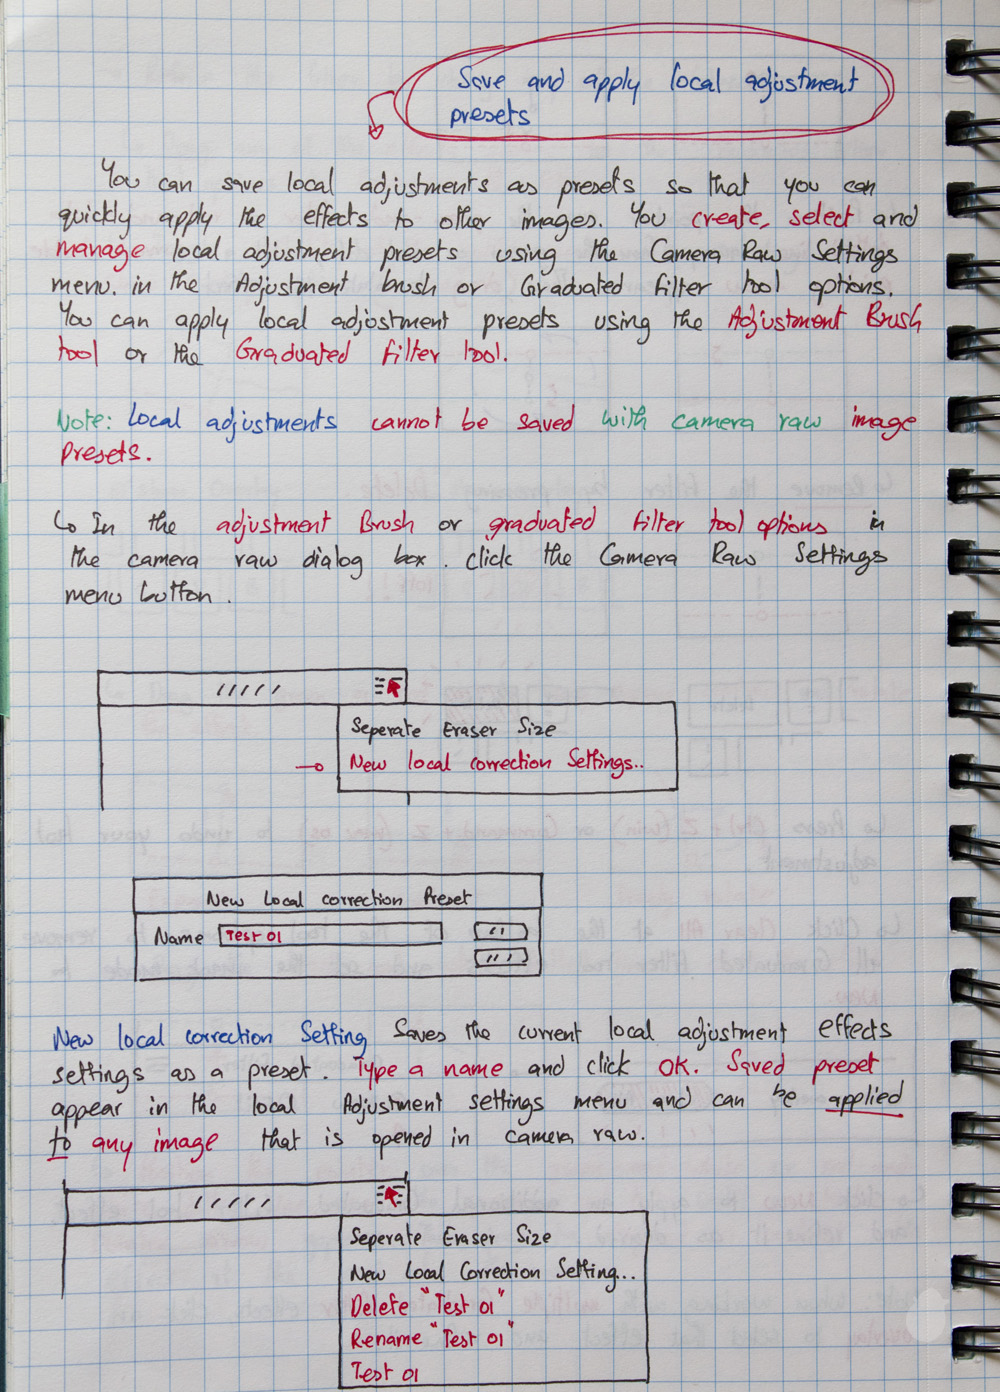 Save and apply local adjustment
presets
You can save local adjustments as presets so that you can
quickly apply the effects to other images. You create, select and
manage local adjustment presets using the Camera Raw Settings
menu. in the Adjustment brush or Graduated Filter tool options.
You can apply local adjustment presets using the Adjustment Brush
tool or the Graduated Filter tool.
Note: Local adjustments cannot be saved with camera raw image
presets.
In the adjustment Brush or graduated filter tool options in
the camera raw dialog box. click the Camera Raw Settings
menu button.
Seperate Eraser Size
New local correction Settings..
New Local correction Preset
Name Test 01
New local correction Setting Saves the current local adjustment effects
settings as a preset. Type a name and click OK. Saved preset
appear in the local Adjustment settings menu and can be applied
to any image that is opened in camera raw.
Seperate Eraser Size
New Local Correction Setting...
Delete "Test 01"
Rename "Test 01"
Test 01